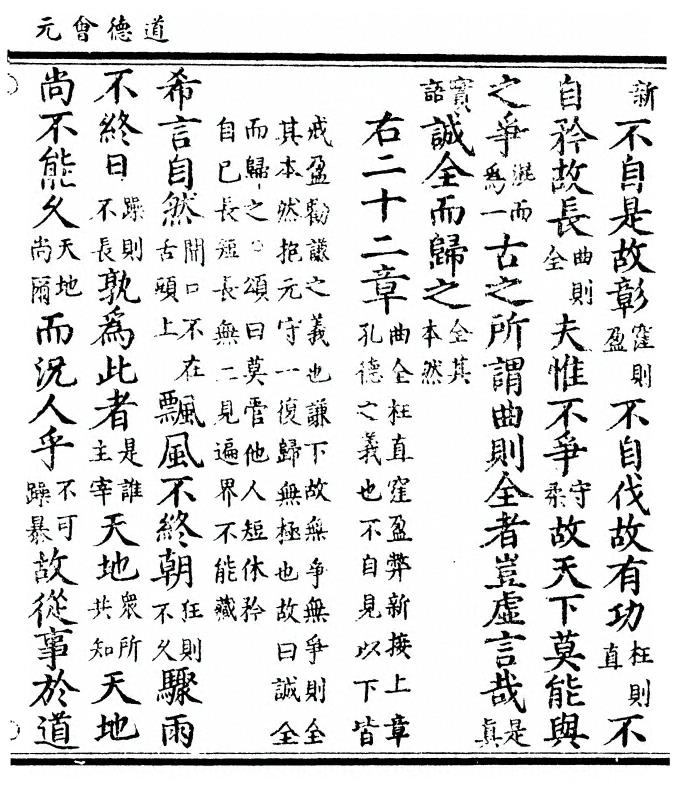 道德會元
新不自是故彰窪則盈不自伐故有功枉則直不
自矜故長曲則全夫惟不爭守柔故天下莫能與
之爭混而為一古之所謂曲則全者豈虛言哉是真
實語誠全而歸之全其本然
右二十二章曲全枉直窪盈弊新接上章孔德之義也不自見以下皆
戒盈勸謙之義也謙下故無爭無爭則全
其本然抱元守一復歸無極也故曰誠全
而歸之○頌曰莫管他人短休矜
自己長短長無二見遍界不能藏
希言自然開口不在舌頭上飄風不終朝狂則不久驟雨
不終日躁則不長孰為此者是誰主宰天地眾所共知天地
尚不能久天地尚爾而況人乎不可躁暴故從事於道